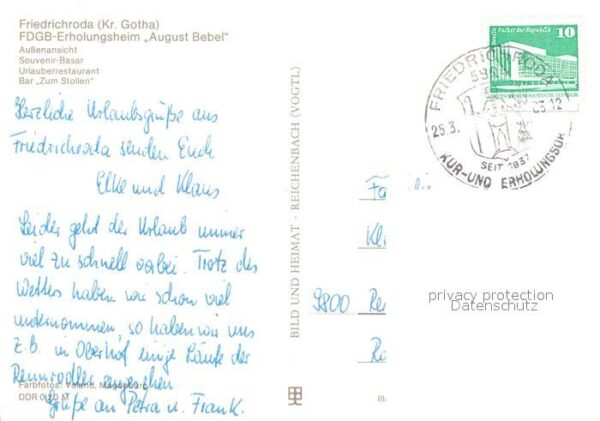 Friedrichroda (Kr. Gotha)
FDGB-Erholungsheim „August Bebel"
Außenansicht
Souvenir-Basar
Urlauberrestaurant
Bar „Zum Stollen"
Herzliche Urlaubsgrüße aus
Friedrichroda senden Euch
Elke und Klaus
Leider geht der Urlaub immer
viel zu schnell vorbei. Trotz des
Wetters haben wir schon viel
unternommen, so haben wir uns
z.B. in Oberhof einige Läufe der
Rennrodler angesehen.
Grüße an Petra u. Frank.
Farbfotos: Voland, Magdeburg
DDR 0,20 M
BILD UND HEIMAT · REICHENBACH (VOGTL)
Berlin Palast der Republik
10
DEUTSCHE DEMOKRATISCHE REPUBLIK
FRIEDRICHRODA
25.3.
12
SEIT 1837
KUR- UND ERHOLUNGSOR
Fa
Kl
9800 Re
Ra
privacy protection
Datenschutz